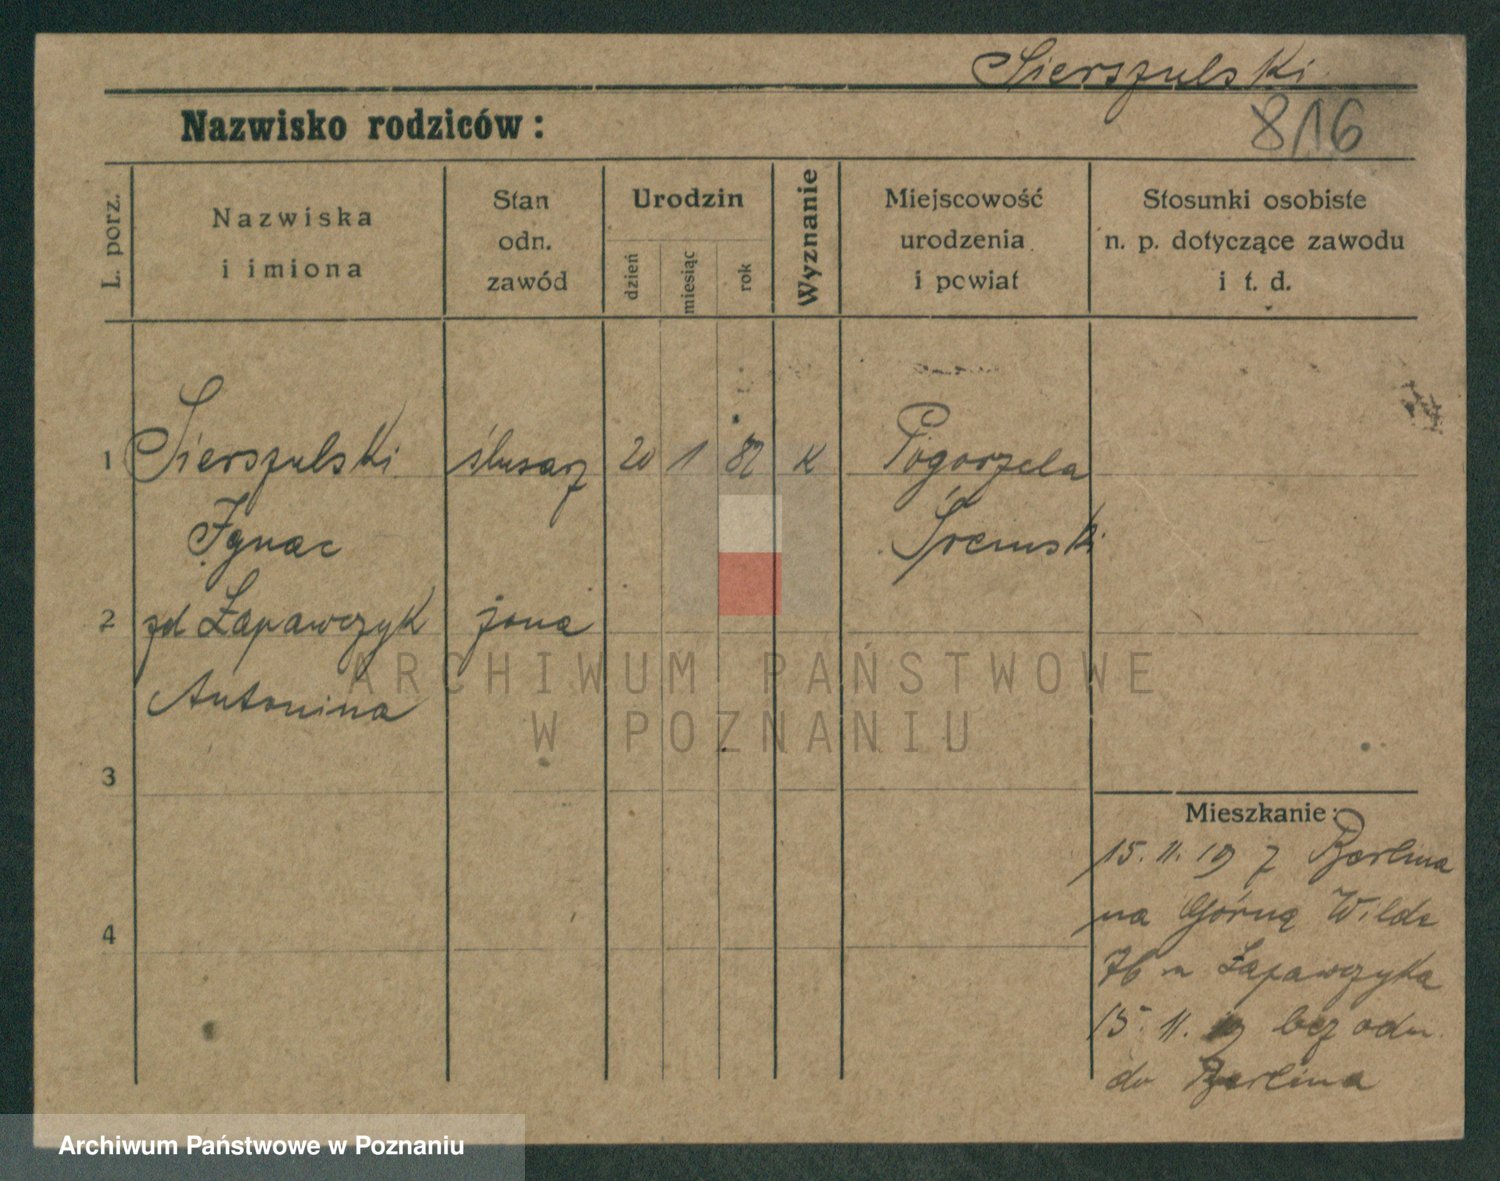 Sierszulski
Nazwisko rodziców:
816
L. porz.
Nazwiska
i imiona
Stan
odn.
zawód
Urodzin
dzień
miesiąc
rok
Wyznanie
Miejscowość
urodzenia
i powiat
Stosunki osobiste
n. p. dotyczące zawodu
i t. d.
1 Sierszulski ślusarz 20 1 82 K Pogorzela
Ignac Śremski
2 zd Łapawczyk żona
Antonina
3
4
Mieszkanie:
15. 11. 19 z Berlina
na Górną Wilde
76 u Łapawczyka
15. 11. 19 bez odm.
do Berlina
ARCHIWUM PAŃSTWOWE
W POZNANIU
Archiwum Państwowe w Poznaniu